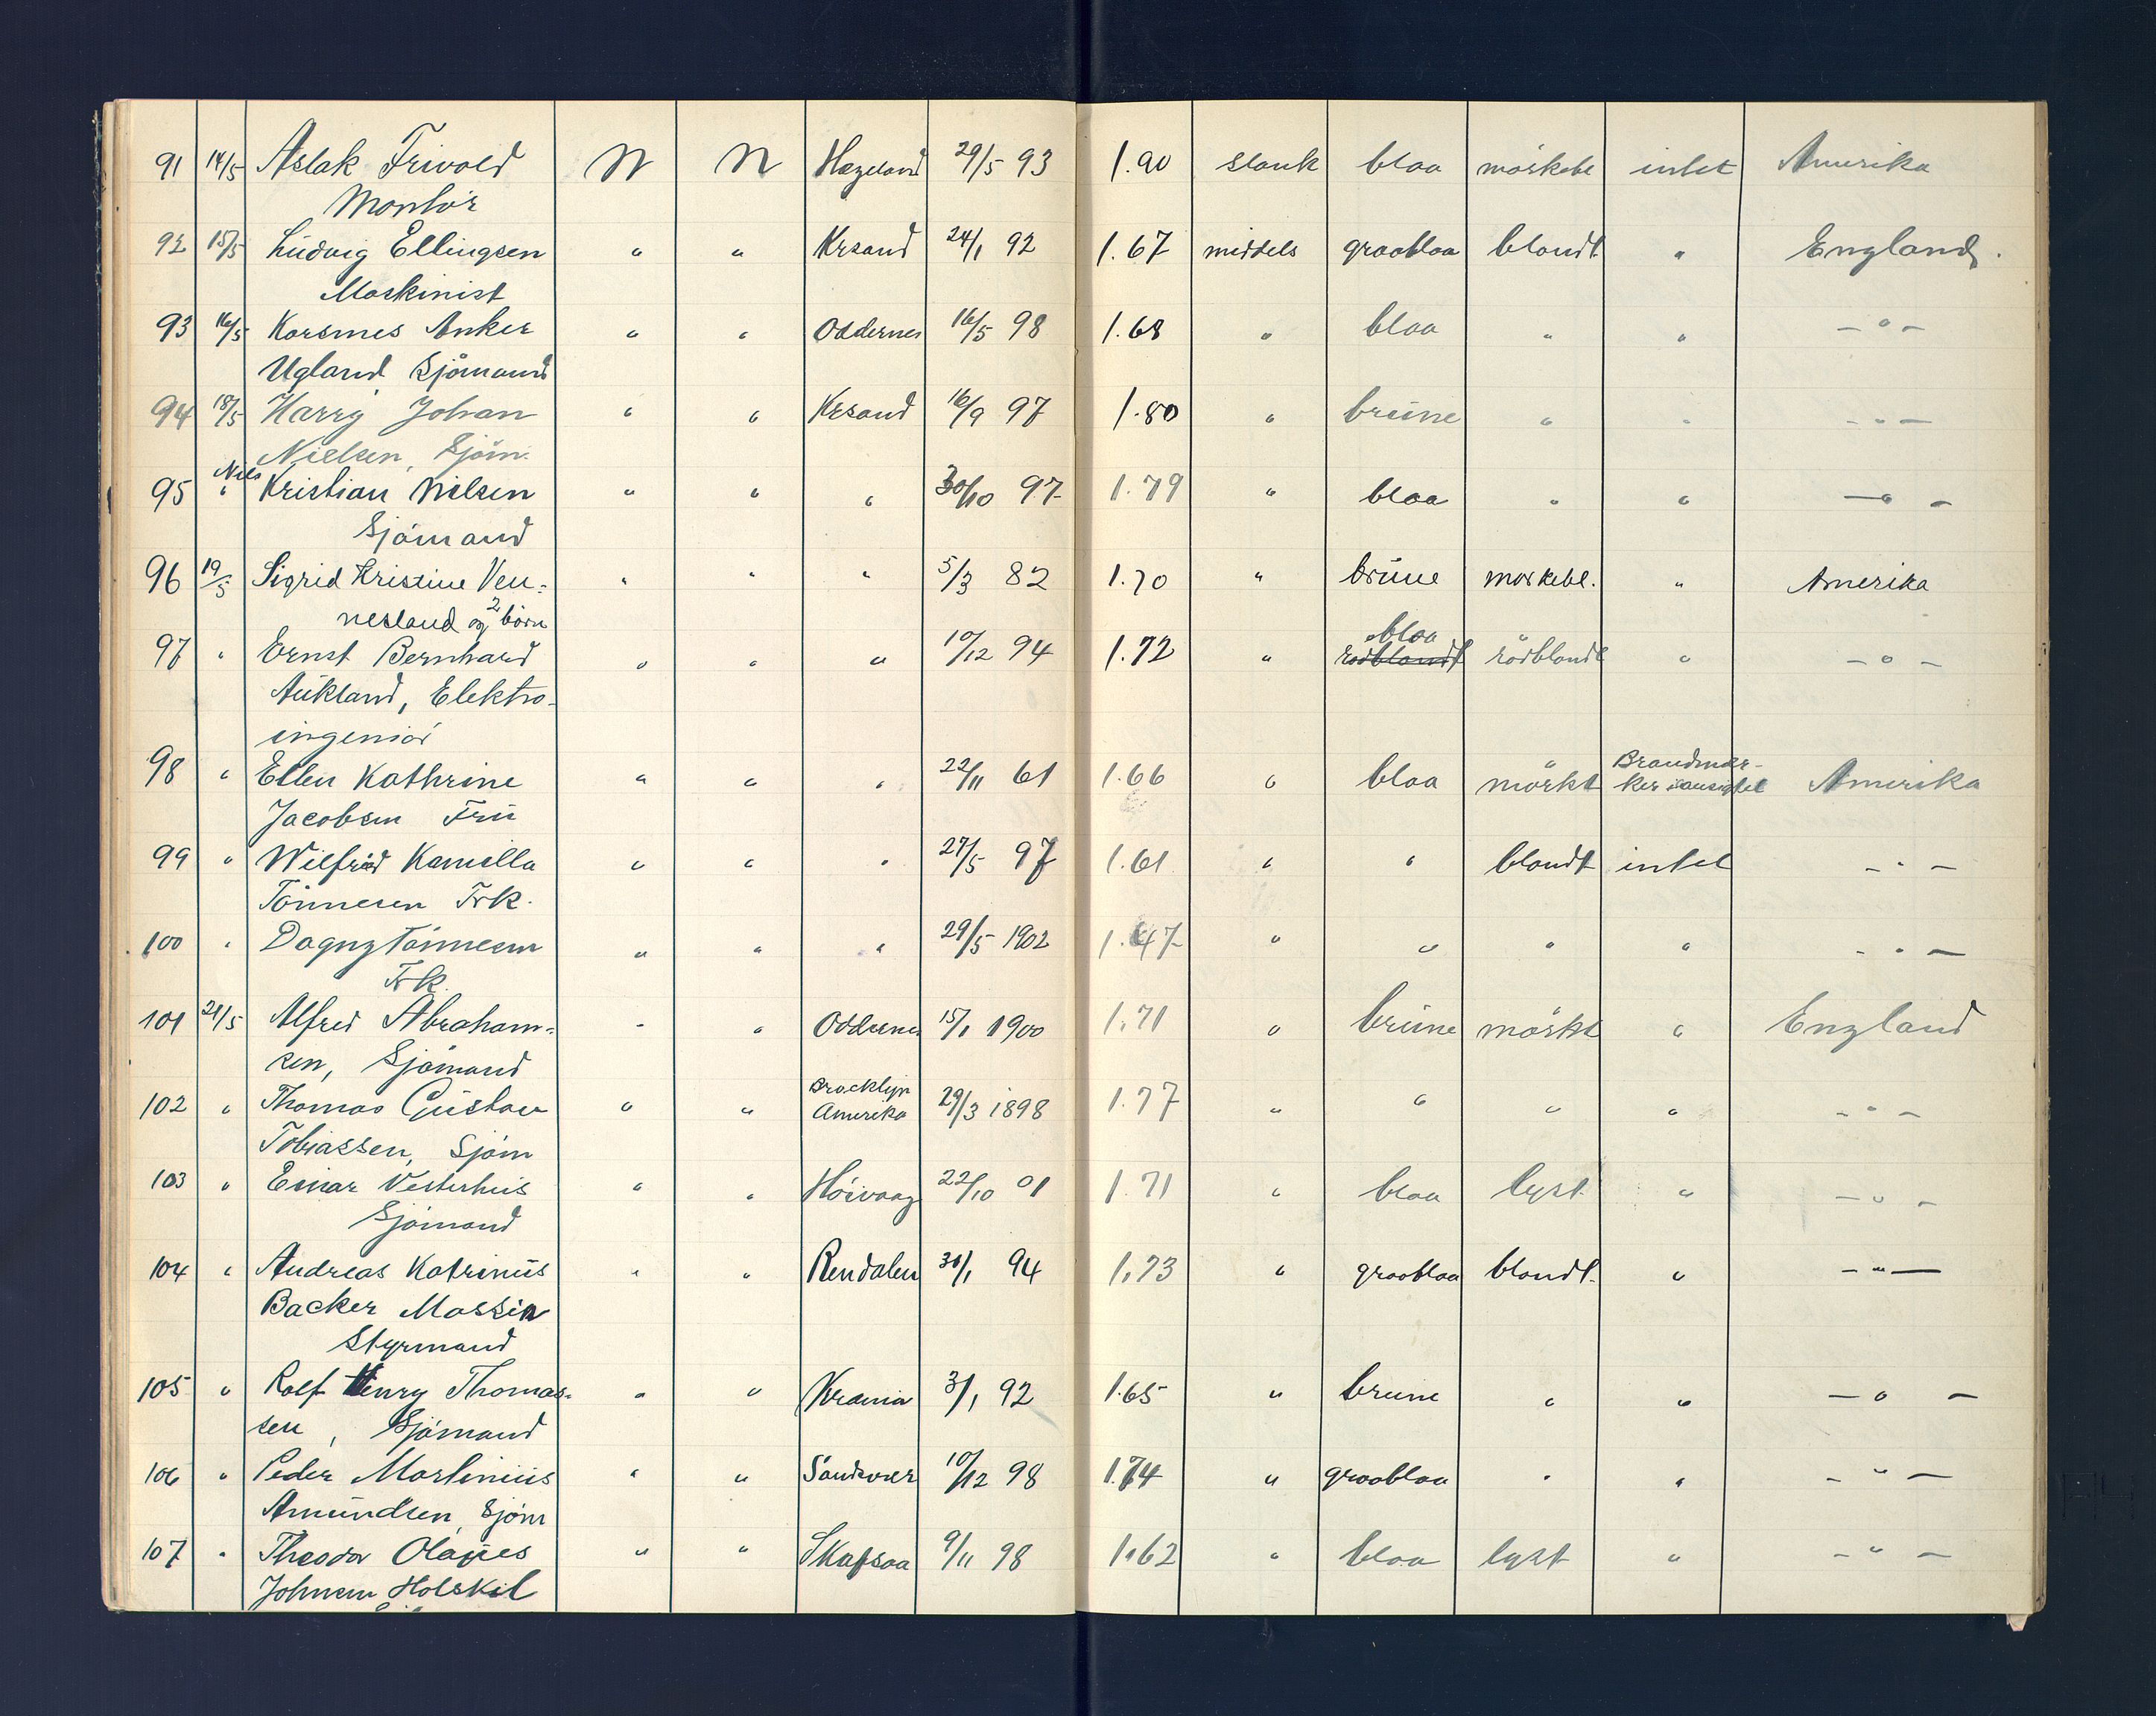 91 14/5 Aslak Frivold N N Hægeland 29/5 93 1.90 slank blaa mörkebl intet Amerika
Montör
92 15/5 Ludvig Ellingsen " " Krsand 24/1 92 1.67 middels graablaa blondt " England.
Maskinist
93 16/5 Anker " " Oddernes 16/5 98 1.68 " blaa " " — " —
Ugland Sjömand
94 18/5 Harry Johan " " Krsand 16/9 97 1.80 " brune " " - " —
Nielsen, Sjöm.
Nils
95 " Kristian Nilsen " " " 30/10 97 1.79 " blaa " " — " -
Sjömand
96 19/5 Sigrid Kristine Ven- " " " 5/3 82 1.70 " brune mørkebl. " Amerika
nesland og 2 börn
blaa
97 " Ernst Bernhard " " " 10/12 94 1.72 " rødblondt rödblondt " — " —
Aukland, Elektro-
ingeniör
Brandmær-
98 " Ellen Kathrine " " " 22/11 61 1.66 " blaa mörkt ker i ansigtet Amerika
Jacobsen Fru
99 " Wilfrid Kamilla " " " 27/5 97 1.61 " " blondt intet - " —
Tönnesen Frk.
100 " Dagny Tönnesen " " " 29/5 1902 1.47 " " " " - " —
Frk.
101 21/5 Alfred Abraham- " " Oddernes 15/1 1900 1.71 " brune mörkt " England
sen, Sjömand
Brocklyn
102 " Thomas Gustav " " Amerika 29/3 1898 1.77 " " " " - " —
Tobiassen, Sjöm
103 " Einar Vesterhus " " Höivaag 22/10 01 1.71 " blaa lyst " — " -
Sjömand
104 " Andreas Katrinus " " Rendalen 30/1 94 1.73 " graablaa blondt " — " —
Backer Mossin
Styrmand
105 " Rolf Henry Thomas- " " Krania 3/1 92 1.65 " brune " " — " —
sen, Sjömand
106 " Peder Martinius " " 10/12 98 1.74 " graablaa " " - " —
Amundsen, Sjöm
107 " Theodor " " Skafsaa 9/11 98 1.62 " blaa lyst " - " —
Johnsen Holskil